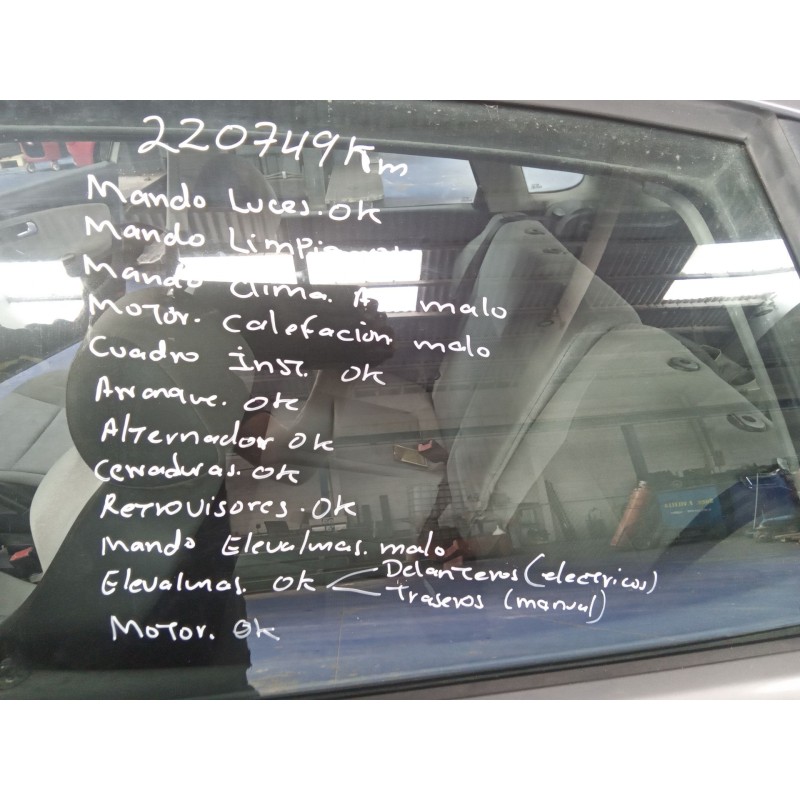 220749 Km
Mando Luces. OK
Mando Limpia
Mando Clima. malo
Motor. Calefacion malo
Cuadro Inst. OK
Arranque. OK
Alternador OK
Cerraduras. OK
Retrovisores. OK
Mando Elevalunas. malo
Elevalunas. OK Delanteros (electricos)
Traseros (manual)
Motor. OK